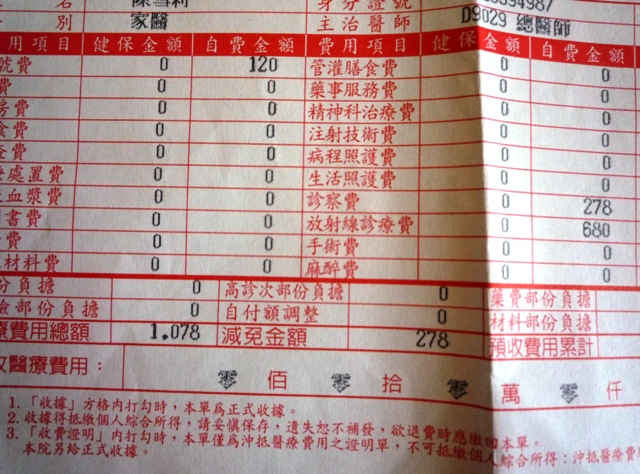 名 陳雪莉 身分證號
別 家醫 主治醫師 D9029 總醫師
用項目 健保金額 自費金額 費用項目 健保金額 自費金額
號費 0 120 管灌膳食費 0 0
費 0 0 藥事服務費 0 0
房費 0 0 精神科治療費 0 0
食費 0 0 注射技術費 0 0
查費 0 0 病程照護費 0 0
處置費 0 0 生活照護費 0 0
血漿費 0 0 診察費 0 278
書費 0 0 放射線診療費 0 680
費 0 0 手術費 0 0
材料費 0 0 麻醉費 0 0
份負擔 0 高診次部份負擔 0 藥費部份負擔
驗部份負擔 0 自付額調整 0 材料部份負擔
療費用總額 1,078 減免金額 278 預收費用累計
收醫療費用： 零 佰 零 拾 零 萬 零 仟
1. 「收據」方格內打勾時，本單為正式收據。
2. 收據得抵繳個人綜合所得，請妥慎保存，遺失恕不補發，欲退費時應繳回本單。
3. 「收費證明」內打勾時，本單僅為沖抵醫療費用之證明單，不可抵繳個人綜合所得；沖抵醫療費
本院另給正式收據。